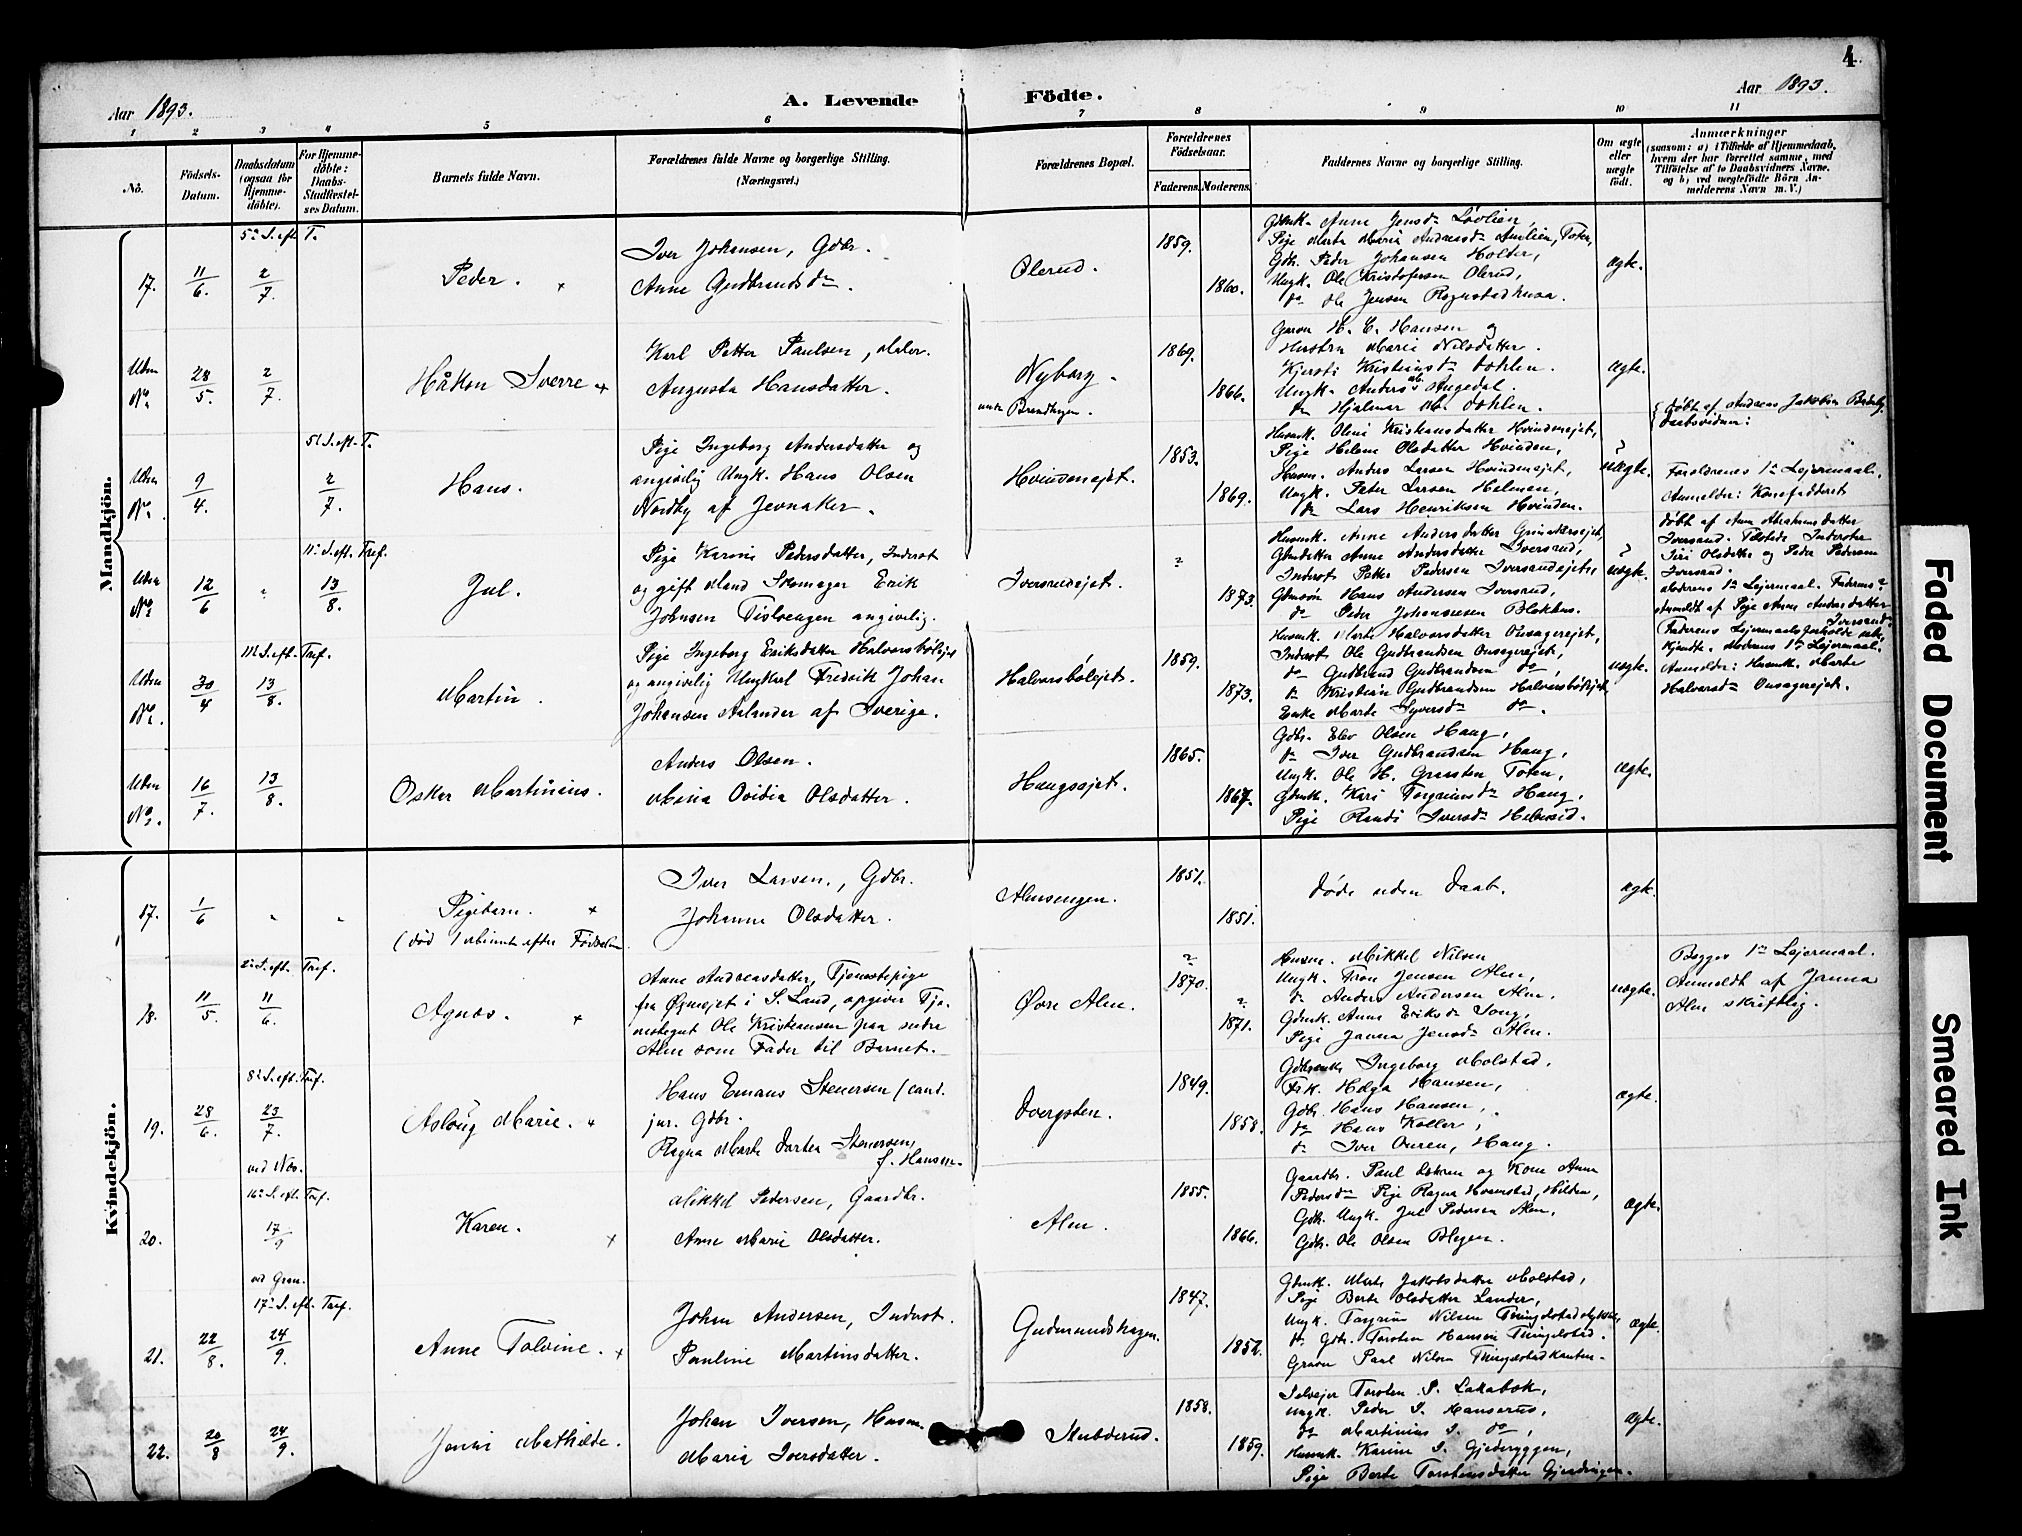 4.
Aar 1893.
A. Levende Födte.
Aar 1893.
1 2 3 4 5 6 7 8 9 10 11
No.
Födsels-Datum.
Daabsdatum (ogsaa for Hjemme-döbte).
For Hjemme-döbte: Daabs-Stadfæstel-ses Datum.
Barnets fulde Navn.
Forældrenes fulde Navne og borgerlige Stilling.
(Næringsvei.)
Forældrenes Bopæl.
Forældrenes Födselsaar.
Faderens. Moderens.
Faddernes Navne og borgerlige Stilling.
Om ægte eller uægte födt.
Anmærkninger
(saasom: a) i Tilfælde af Hjemmedaab,
hvem der har forrettet samme, med
Tilföielse af to Daabsvidners Navne,
og b) ved uægtefödte Börn An-
melderens Navn m. V.)
Mandkjön.
17. 11/6. 5te S. eft. T. 2/7.
Peder.
Iver Johansen, Gdbr.
Anne Gudbrandsdr.
Olerud.
1859.
1860.
Gdmk. Anne Jensdr Løvlien,
Pige Marte Marie Andersdr Amlien, Toten,
Gdb. Peder Johansen Holder,
Ungk. Ole Kristofersen Olerud,
do Ole Jensen Rognstadhusa.
ægte.
Uden No. 28/5. 2/7.
Håkon Sverre
Karl Petter Paulsen, Maler.
Augusta Hansdatter.
Nyborg
under Brandhagen.
1869.
1866.
H. C. Hansen og
Hustru Marie Nilsdatter.
Kjersti Kristiansdr Dohlen.
Ungk. Anders Angedal.
do Hjalmar M. Dohlen.
ægte.
Uden No. 9/4. 5te S. eft. T. 2/7.
Hans.
Pige Ingeborg Andersdatter og
angivelig Ungk. Hans Olsen
Nordby af Jevnaker.
Hvindenejet.
1853.
1869.
Husmk. Oleni Kristiansdatter Hvindenejet,
Pige Helene Olsdatter Hvinden,
Husm. Anders Larsen Hvindenejet,
Ungk. Peder Larsen Helmen,
do Lars Henriksen Hvinden.
uægte.
Døbt af Andreas Jakobsen
Daabsvidner:
Forældrenes 1ste Lejermaal.
Anmelder: Konefadderet
Uden No. 12/6 " 11te S. eft. Tref. 13/8.
Jul.
Pige Karine Pedersdatter, Inderst
og gift Mand Skomager Erik
Johnsen Tislvengen angivelig.
Iversrudejet.
?
1873.
Husmk. Anne Andersdatter
Gdmdatter Anne Andersdatter Iversrud,
Inderst Petter Pedersen Iversrudejet,
Gdmsøn Hans Andersen Iversrud,
do Peder Johannesen Blekken.
uægte.
Døbt af Anne Abrahamsdatter
Iversrud. Tilstede Inderster
Siri Olsdatter og Peder Pedersen
Iversrud.
Moderens 1ste Lejermaal. Faderens ?
Anmeldt af Pige Anne Andersdatter
Iversrud
Uden No. 30/4 11te S. eft. Tref. 13/8.
Martin.
Pige Ingeborg Eriksdatter Halvorsbølejet
og angivelig Ungkarl Fredrik Johan
Johansen Aalander af Sverige.
Halvorsbølejet.
1859.
1873.
Husmk. Marte Halvorsdatter Onsagerejet,
Inderst Ole Gudbrandsen Onsagerejet,
do Gudbrand Gudbrandsen do,
do Kristian Gudbrandsen Halvorsbølejet
Enke Marte Syversdr do.
uægte.
Faderens Lejermaalsforholde ube-
kjendte. Moderens 1ste Lejermaal.
Anmelder: Husmk. Marte
Halvorsdr Onsagerejet.
Uden No. 16/7. 13/8.
Oskar Martinius.
Anders Olsen.
Maria Ovidia Olsdatter.
Haugsejet.
1865.
1867.
Gdbr. Elev Olsen Haug,
do Iver Gudbrandsen Haug,
Ungk. Ole H. Toten,
Gdmk. Kari Torgrimsdr Haug,
Pige Randi Iversdr
ægte.
Kvindekjön.
17. 1/6 " "
Pigebarn.
(død 1 Minut efter Fødselen
Iver Larsen, Gdbr.
Johanne Olsdatter.
Almsengen.
1851.
1851.
Døde uden Daab.
ægte.
18. 11/5. 2den S. eft. Tref. 11/6.
Agnes.
Anne Andreasdatter, Tjenestepige
fra Øgnejet i S. Land, opgiver Tje-
nestegut Ole Kristiansen paa søndre
Alm som Fader til Barnet.
Øvre Alm.
? 1870.
? 1871.
Husm. Mikkel Nilsen
Ungk. Tron Jensen Alm,
do Anders Andersen Alm.
Gdmk. Anne Eriksdr Song,
Pige Janna Jensdr Alm.
uægte.
Begges 1ste Lejermaal.
Anmeldt af Janna
Alm skriftlig.
19. 28/6. 8de S. eft. Tref. 23/7.
Aslaug Marie.
Hans Emaus Stenersen (cand.
jur. Gdbr.
Ragna Marte Dortea Stenersen,
f. Hansen.
Dvergsten.
1849.
1858.
Gdbrenke Ingeborg Molstad,
Frk. Helga Hansen,
Gdbr. Hans Hansen,
do Hans Koller,
do Iver Ouren, Haug.
ægte.
20. ved Næs. 16de S. eft. Tref. 17/9
Karen.
Mikkel Pedersen, Gaardbr.
Anne Marie Olsdatter.
Alm.
1855.
1866.
Gaardbr. Paul og Kone Anne
Pedersdr Pige Ragna Hvamstad, Hilden,
Gdb. Ungk. Jul Pedersen Alm,
Gdbr. Ole Olsen Blegen.
ægte.
21. 22/8. ved Gran. 17de S. eft. Tref. 24/9.
Anne Tolvine.
Johan Andersen, Inderst.
Pauline Martinsdatter.
Gudmundshagen.
1847.
1852.
Gdmk. Marte Jakobsdatter Molstad,
Pige Berte Olsdatter Lander,
Ungk. Torgrim Nilsen Tingelstadstykke,
do Gdbr. Torsten Hansen Tingelstad.
Paul Nilsen Tingelstadkanten.
ægte.
22. 20/8 24/9.
Jenni Mathilde.
Johan Iversen, Husm.
Maria Iversdatter.
Stubberud.
1858.
1859.
Selvejer Torsten P. Lakabæk,
Ungk. Peder I. Hanserud,
do Martinius I. do,
Husmk. Karine I. Gjederyggen,
Pige Berte Torstensdatter
ægte.
Faded Document
Smeared Ink